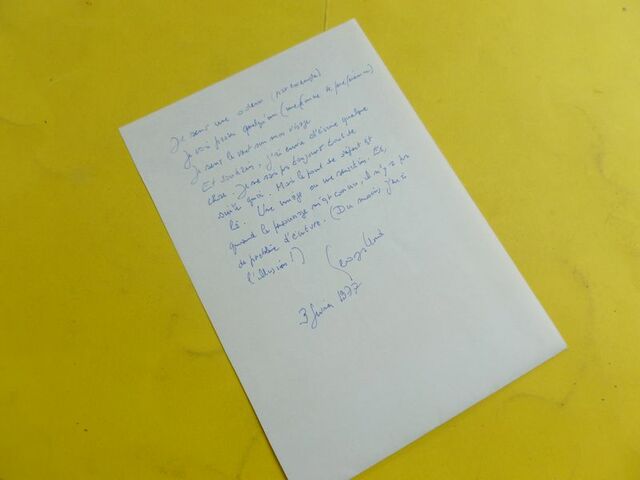 Je sens une odeur (par exemple)
Je vois passer quelqu'un (une femme de préférence)
Je sens le vent sur mon visage
Et soudain, j'ai envie d'écrire quelque
chose. Je ne sais pas toujours tout de
suite quoi. Mais le point de départ est
là. Une image ou une sensation. Et,
quand le personnage m'est connu, il n'y a pas
de problème d'écriture. (Du moins, j'en ai
l'illusion!)
3 février 1977